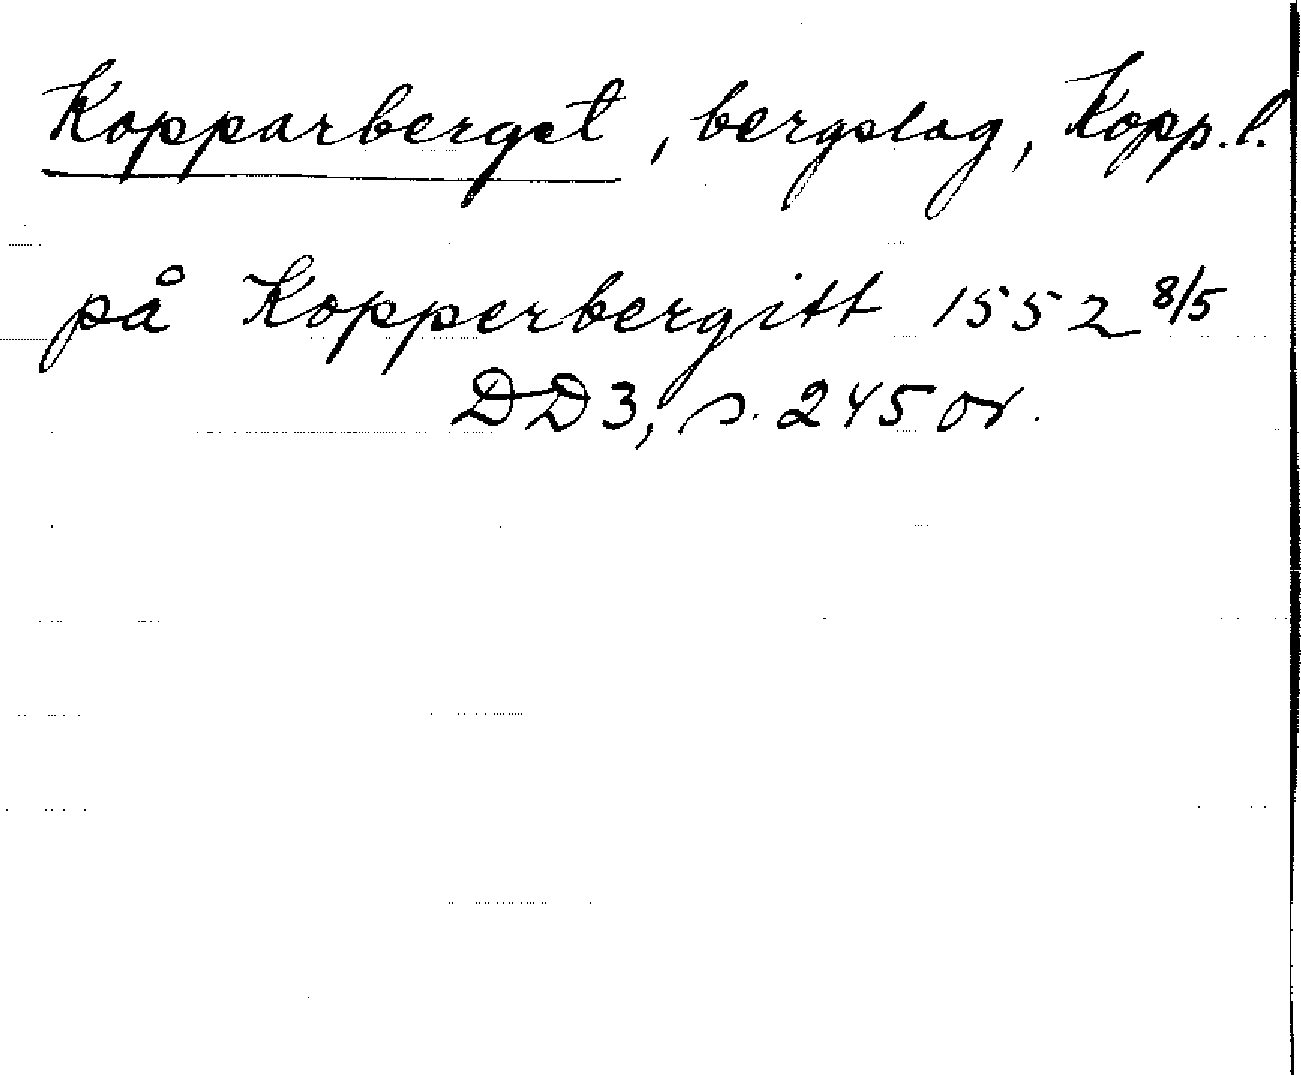 Kopparberget, bergslag, Kopp. l.
på Kopperbergitt 1552 8/5
DD3, s. 245 or.